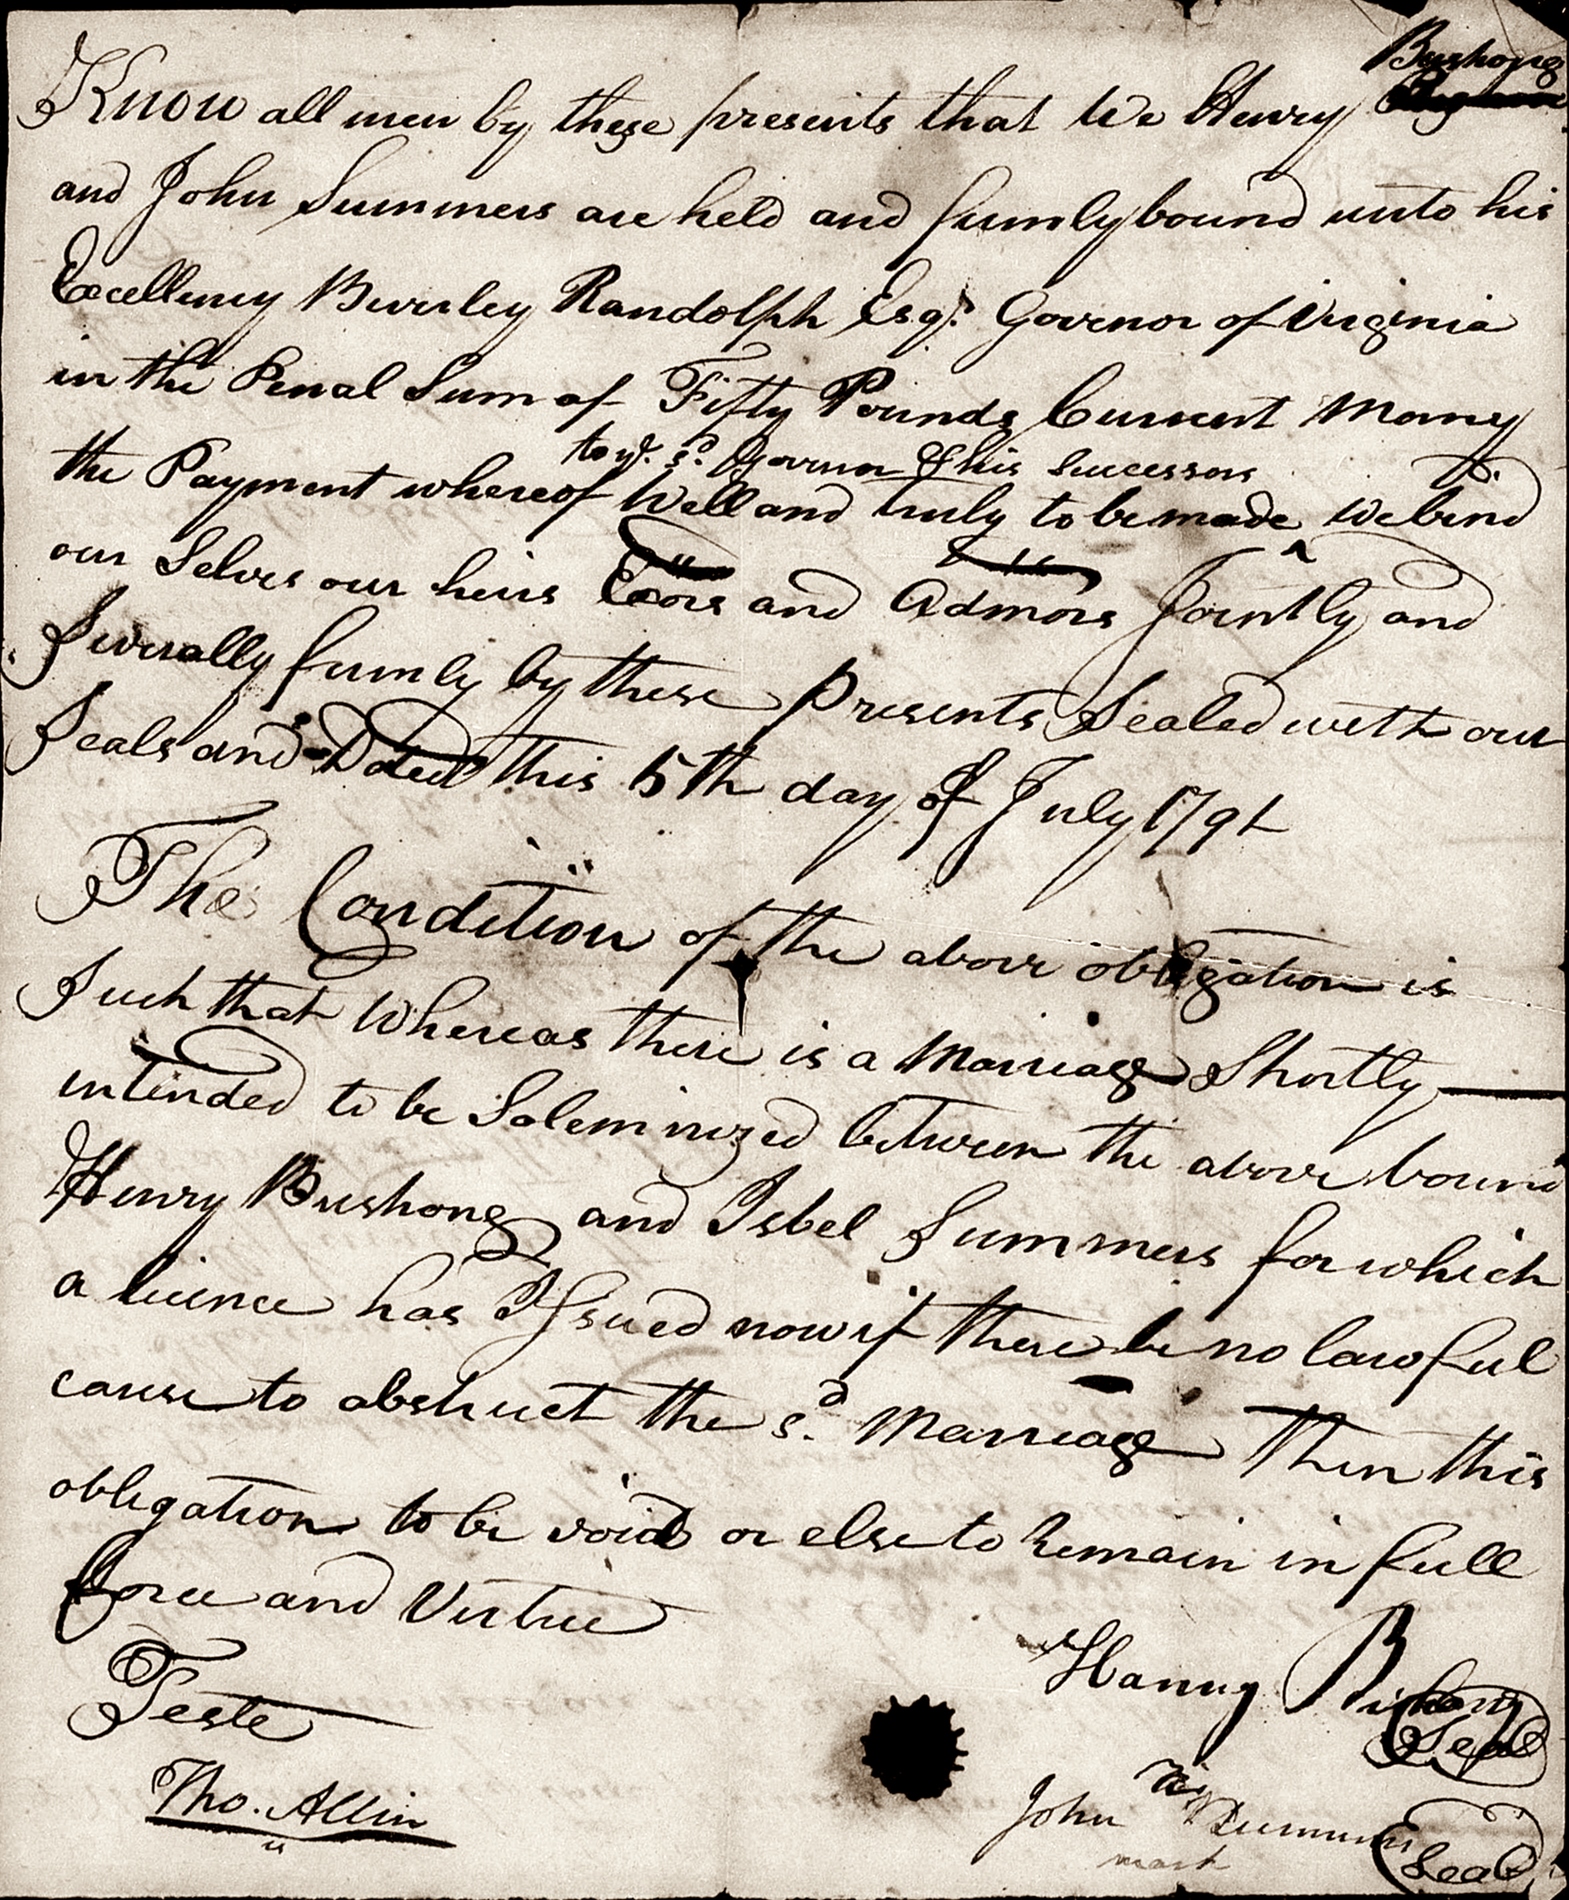 Bushong
Know all men by these presents that We Henry
and John Summers are held and firmly bound unto his
Excellency Beverley Randolph Esqr. Governor of Virginia
in the Penal Sum of Fifty Pounds Current Money
to ye. sd. Governor & his Successors
the Payment whereof Well and truly to be made ^ We bind
our Selves our heirs Exors and Admors Jointly and
Severally firmly by these Presents Sealed with our
Seals and Dated this 5th day of July 1791
The Condition of the above obligation is
Such that Whereas there is a Marriage Shortly
intended to be Solemnized between the above bound
Henry Bushong and Isbel Summers for which
a licence has Issued now if there be no lawful
cause to obstruct the sd. Marriage Then this
obligation to be void or else to Remain in full
force and Virtue
Teste
Hanrry Bushong Seal
Tho. Allin
John his Summers Seal
mark